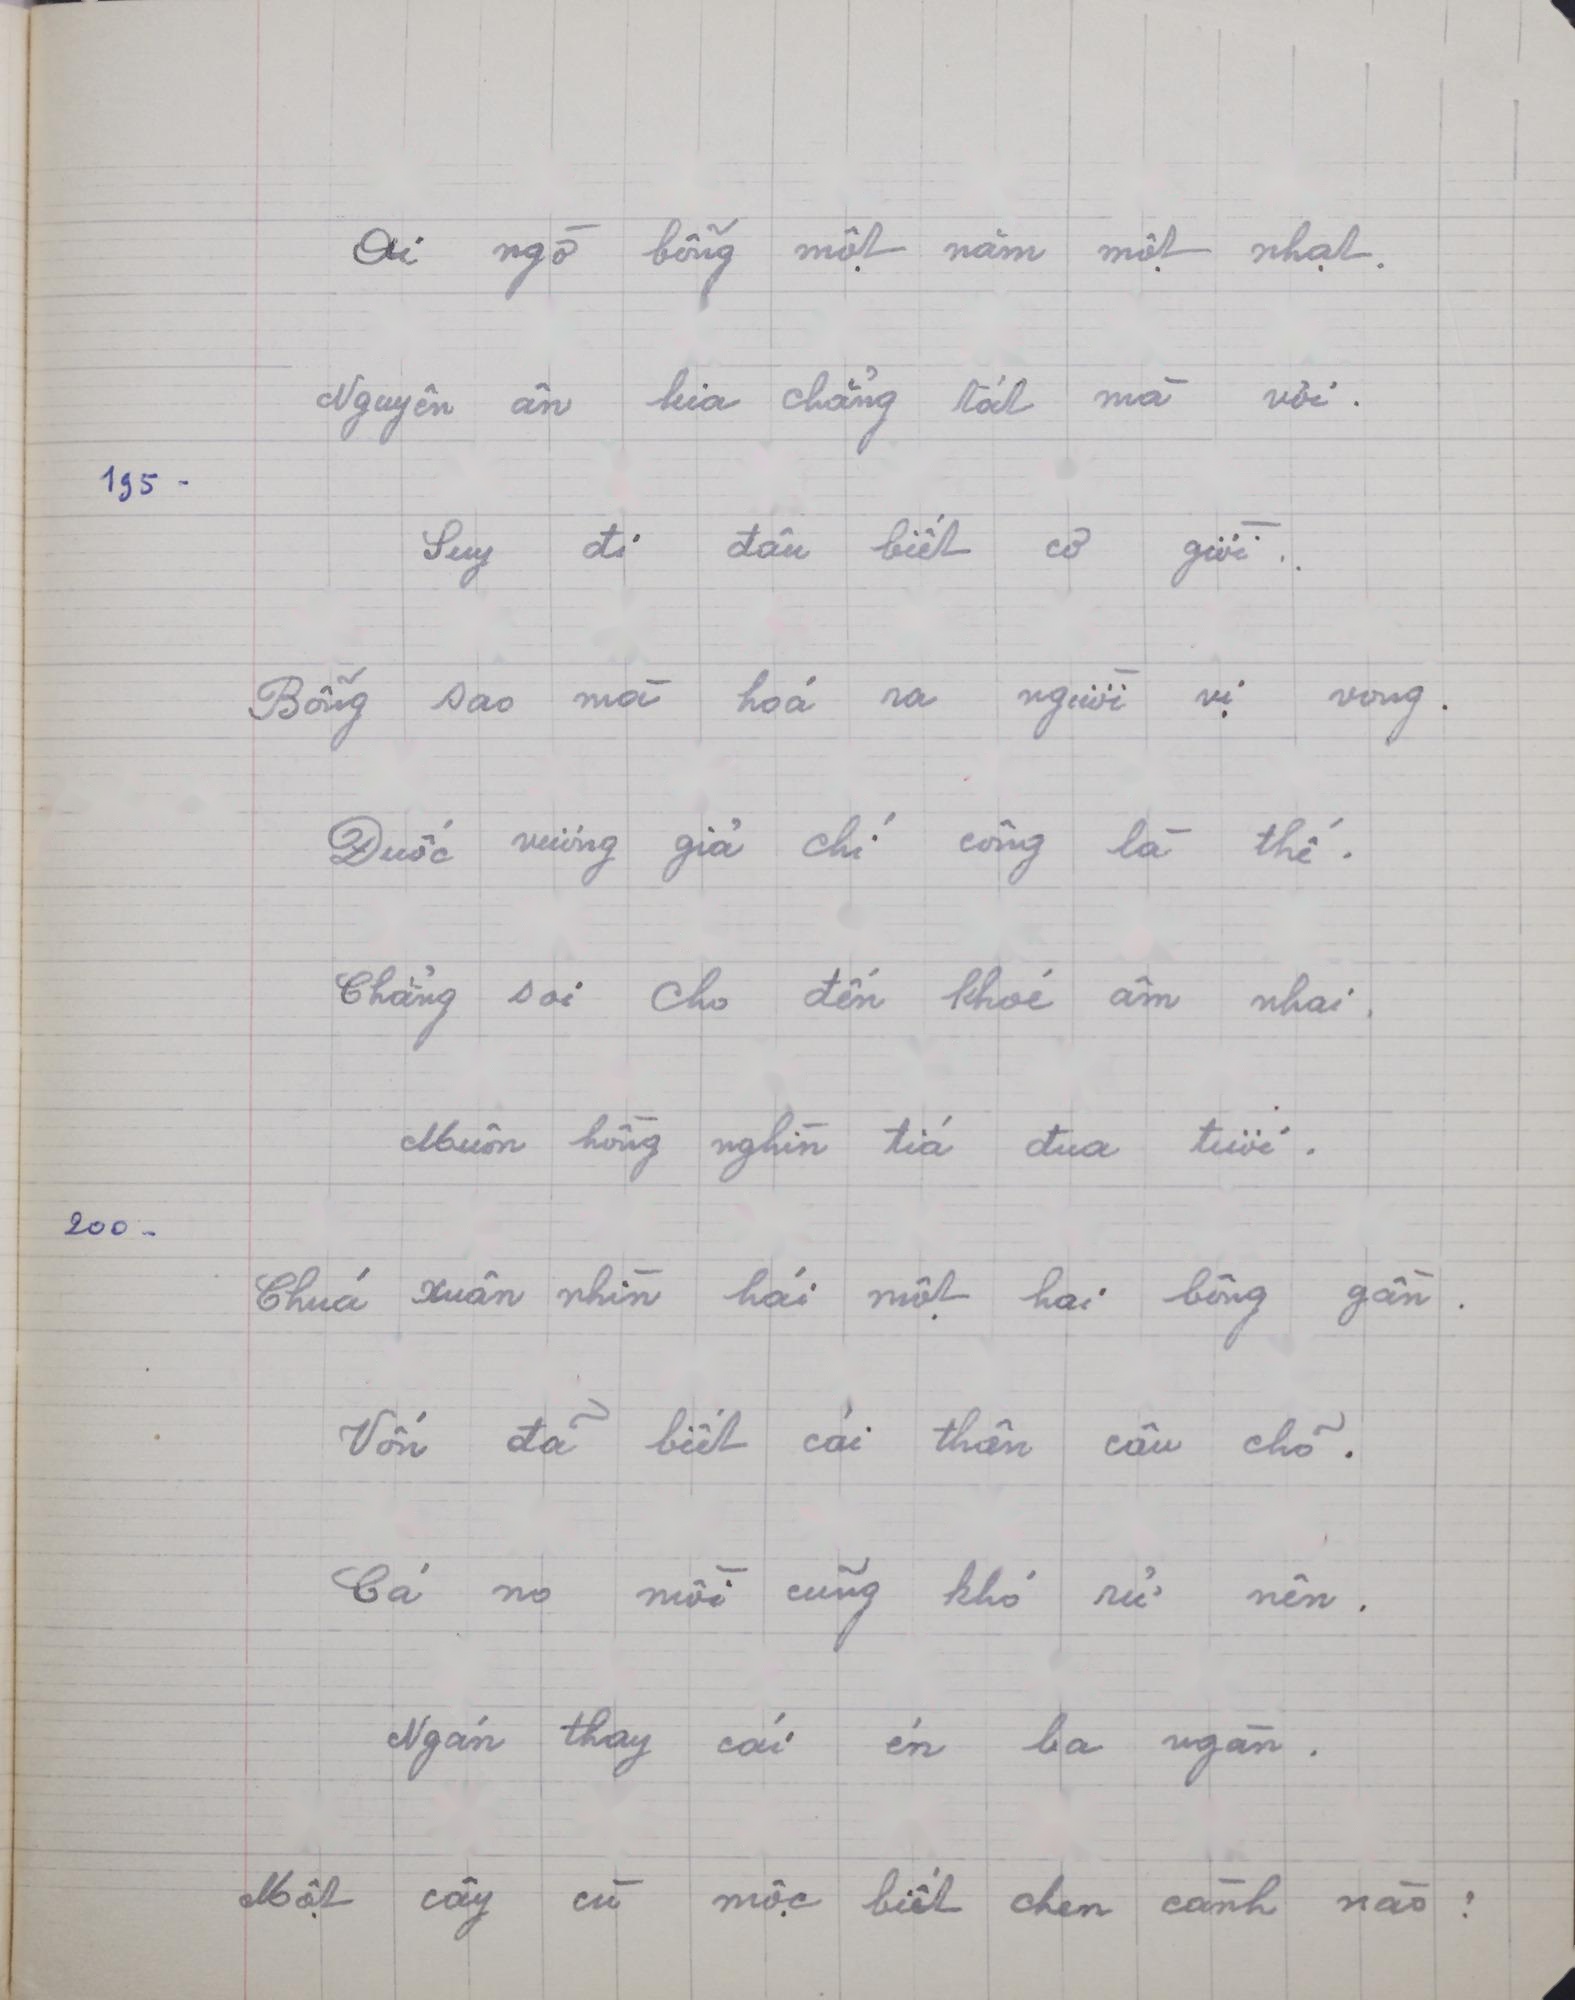 Ai ngờ bỗng một năm một nhạt.
Nguyên ân kia chẳng tát mà vơi.
195-
Suy đi đâu biết cơ giời..
Bỗng sao mà hoá ra người vị vong.
Đuốc vương giả chí công là thế.
Chẳng soi cho đến khoé âm nhai.
Muôn hồng nghìn tiá đua tươi.
200-
Chuá xuân nhìn hái một hai bông gần.
Vốn đã biết cái thân câu chõ.
Cá no mồi cũng khó rử nên.
Ngán thay cái én ba ngàn.
Một cây cù mộc biết chen cành nào!